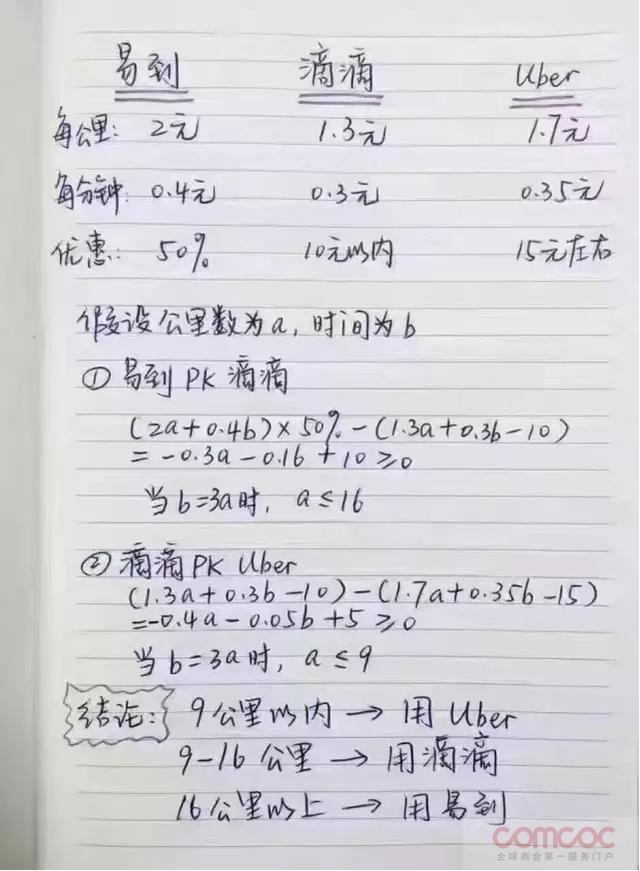 易到 滴滴 Uber
每公里: 2元 1.3元 1.7元
每分钟: 0.4元 0.3元 0.35元
优惠: 50% 10元以内 15元左右
假设公里数为a, 时间为b
① 易到 PK 滴滴
(2a+0.4b)×50%-(1.3a+0.3b-10)
=-0.3a-0.1b+10≥0
当b=3a时, a≤16
② 滴滴PK Uber
(1.3a+0.3b-10)-(1.7a+0.35b-15)
=-0.4a-0.05b+5≥0
当b=3a时, a≤9
结论: 9公里以内→用Uber
9-16公里→用滴滴
16公里以上→用易到
comcoc
全球商会第一服务门户